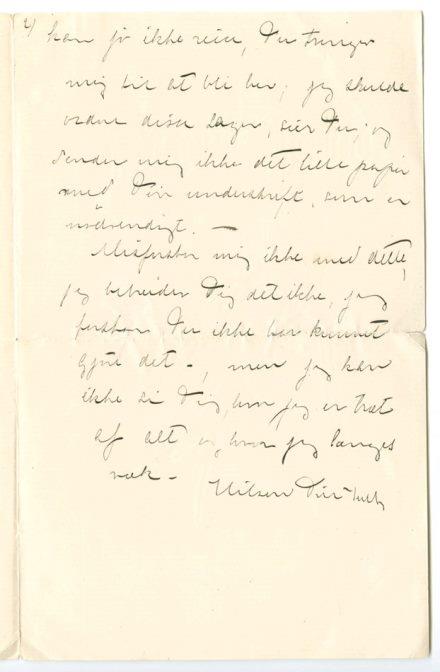 4)
kan jo ikke reise, Du tvinger
mig til at bli her; jeg skulde
ordne disse sager, sier Du; og
sender mig ikke det lille papir
med Din underskrift, som er
nödvendigt. —
Misforstaa mig ikke med dette,
jeg bebreider Dig det ikke, jeg
forstaar Du ikke har kunnet
gjøre det –, men jeg kan
ikke si Dig, hvor jeg er træt
af alt og hvor jeg længes
væk –
Hilsen Din